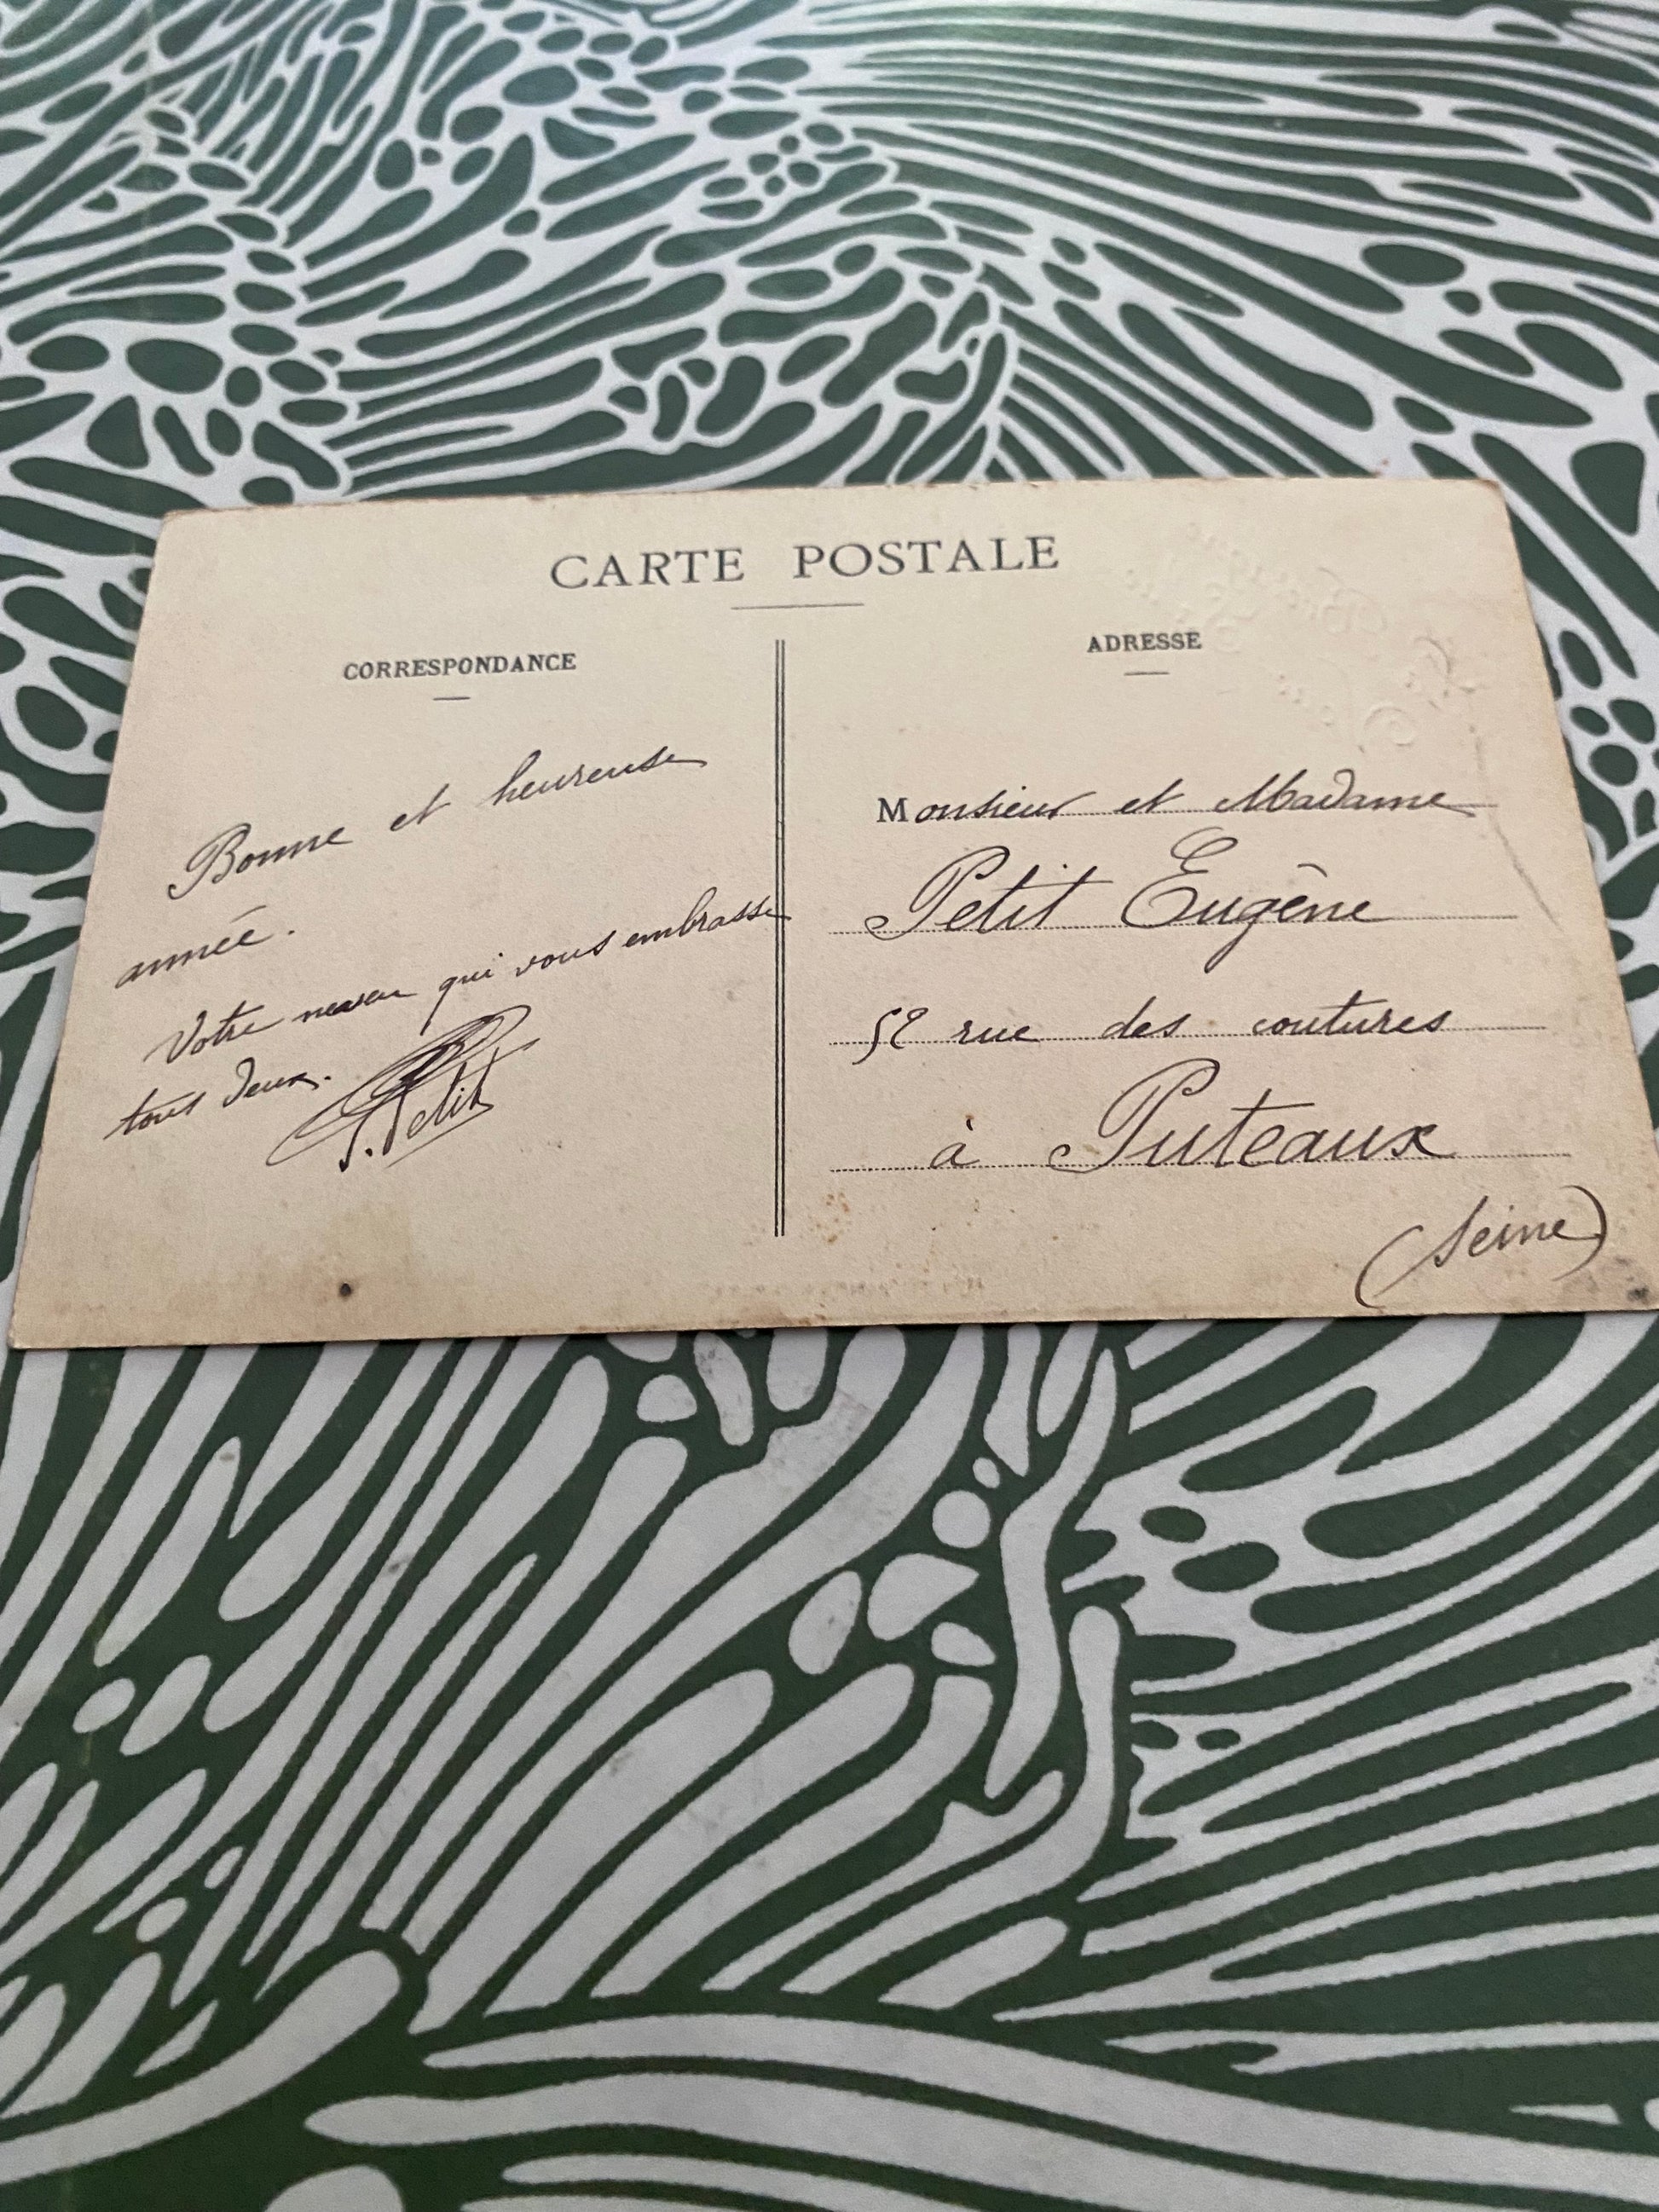 CARTE POSTALE
CORRESPONDANCE
Bonne et heureuse
année.
Votre neveu qui vous embrasse
tous deux.
Petit
ADRESSE
Monsieur et Madame
Petit Eugène
52 rue des coutures
à Puteaux
(Seine)